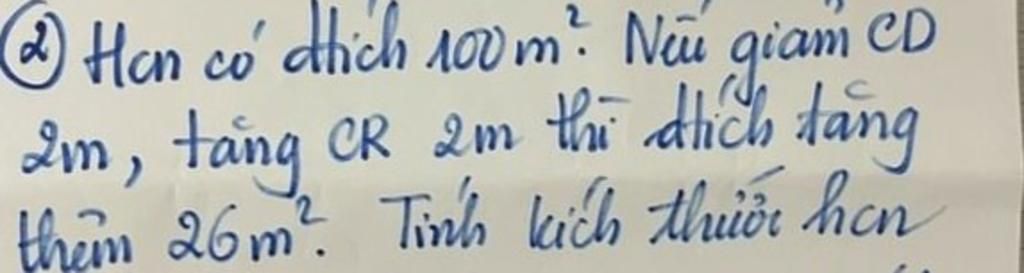 ② Hcn có dtích 100m². Nếu giảm CD
2m, tăng CR 2m thì dtích tăng
thêm 26m². Tính kích thước hcn